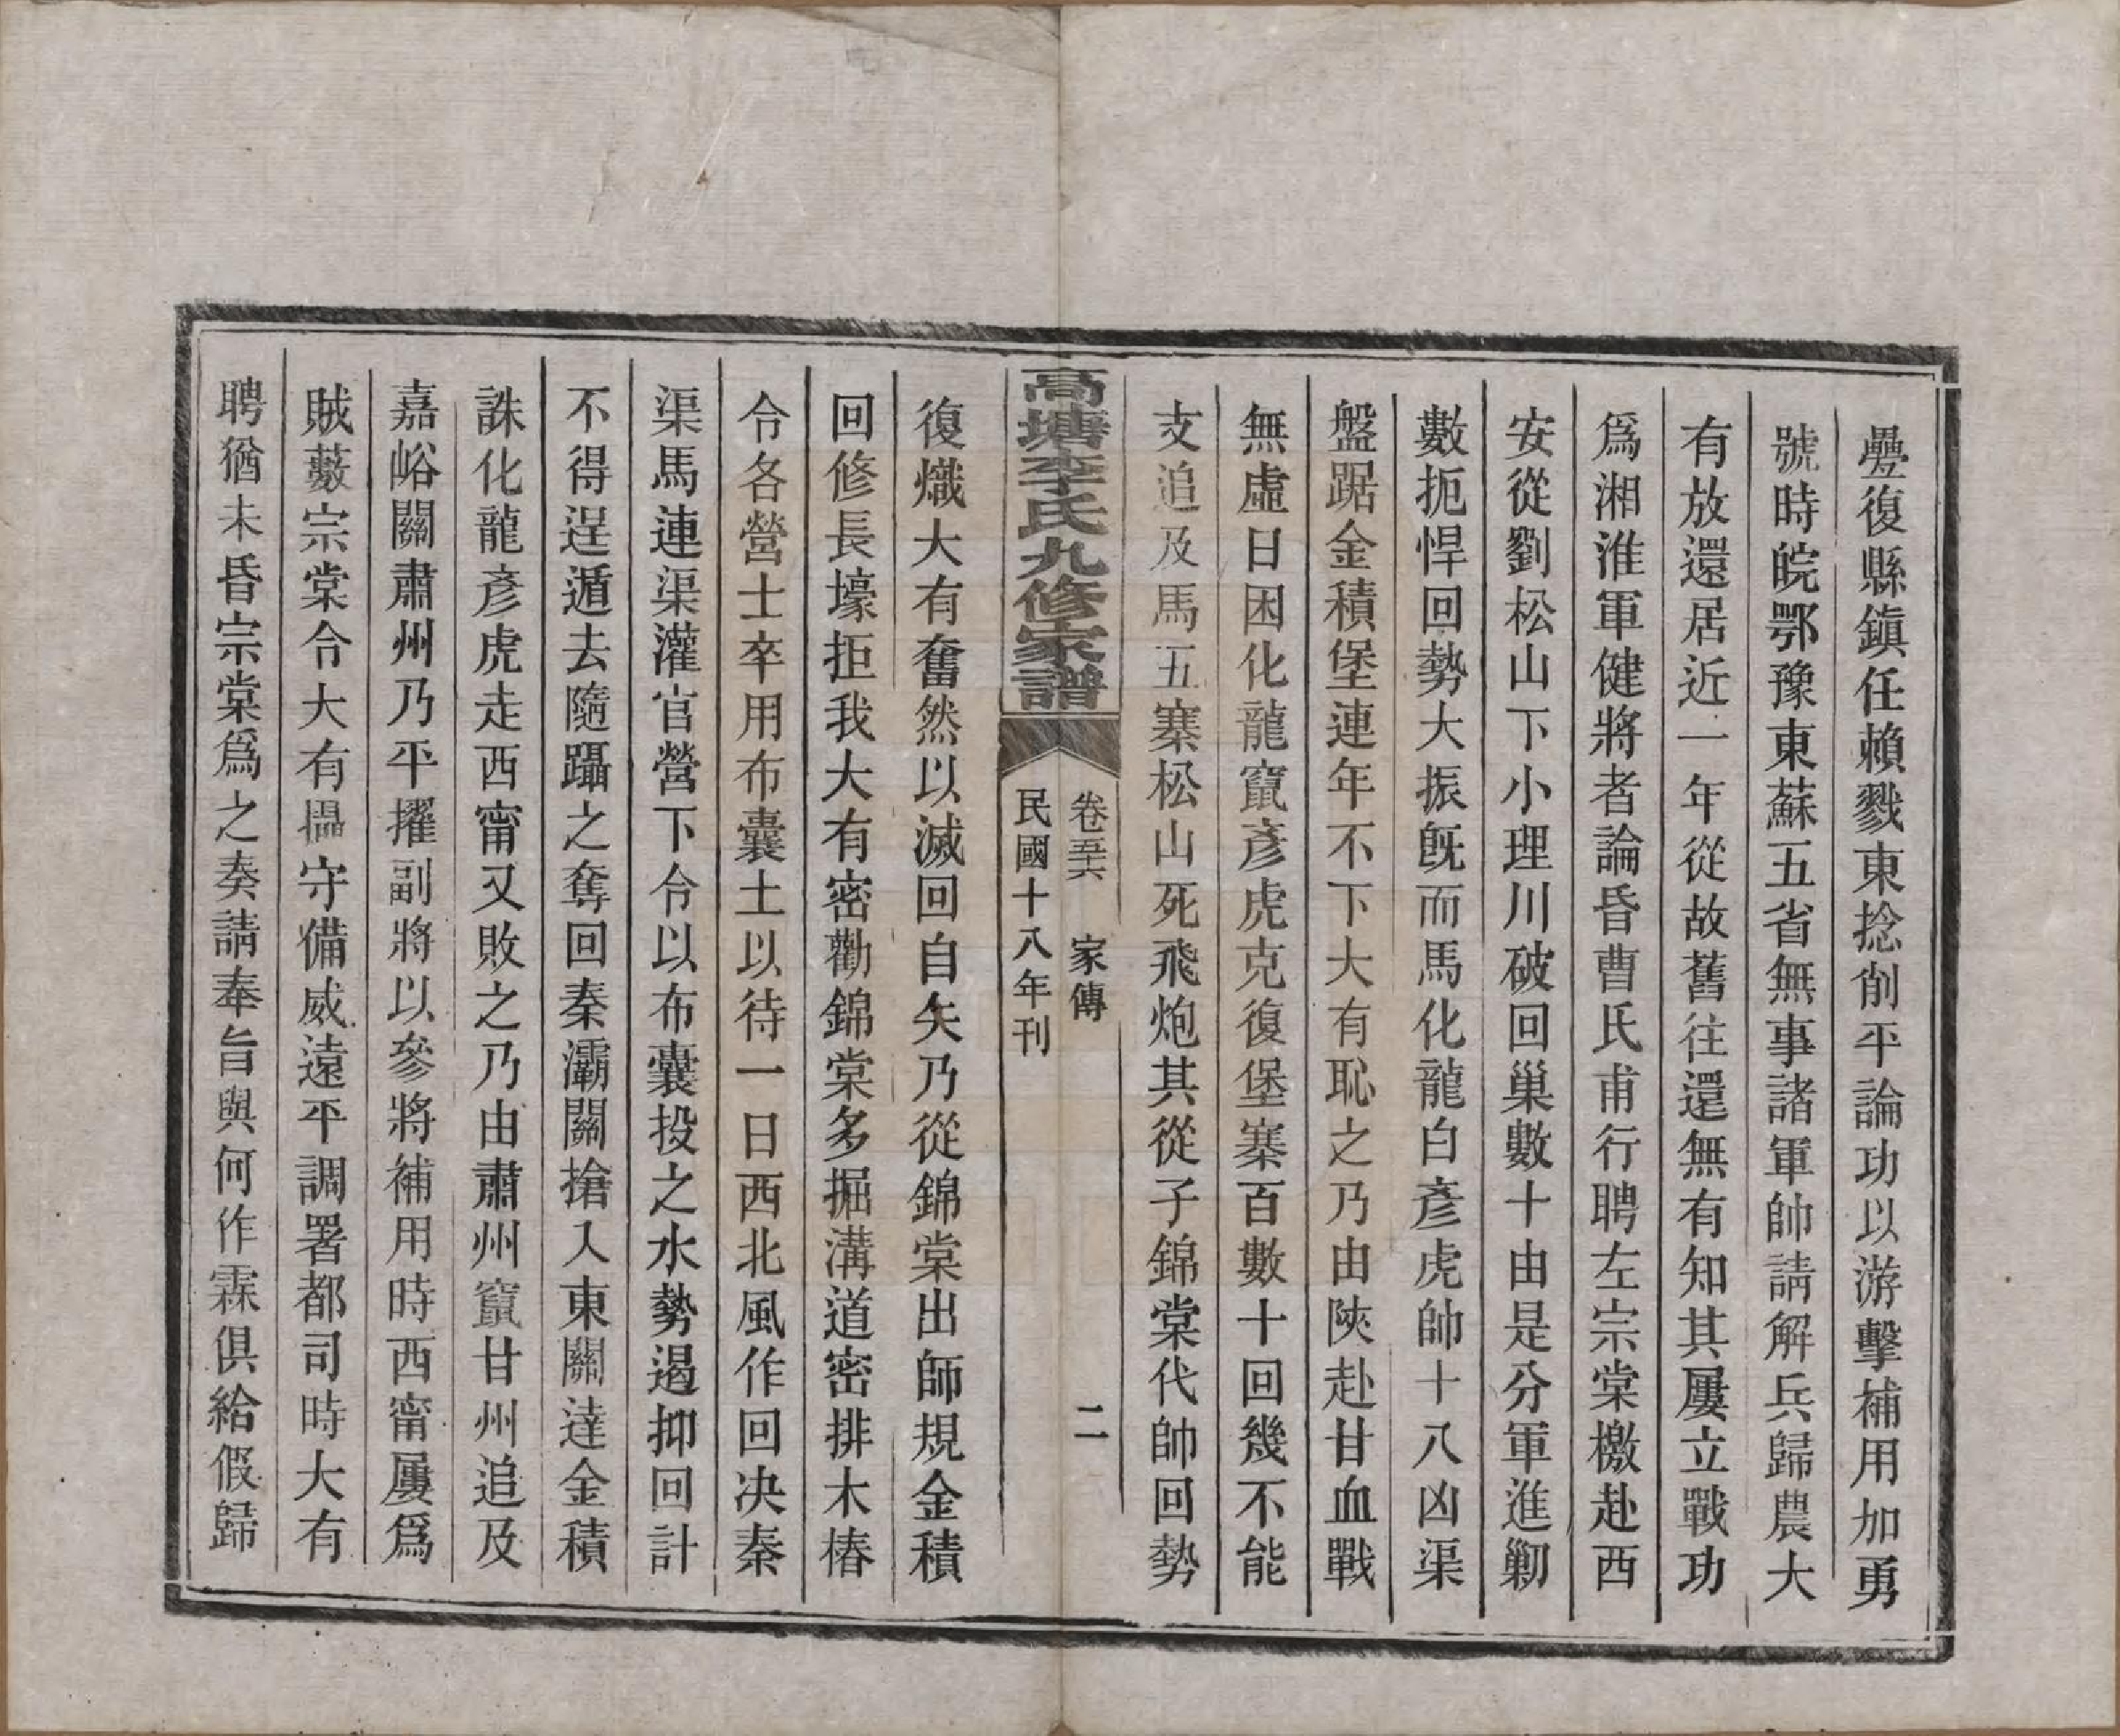 疊復縣鎮任賴戮東捻削平論功以游擊補用加勇
號時皖鄂豫東蘇五省無事諸軍帥請解兵歸農大
有放還居近一年從故舊往還無有知其屢立戰功
爲湘淮軍健將者論昏曹氏甫行聘左宗棠檄赴西
安從劉松山下小理川破回巢數十由是分軍進剿
數扼悍回勢大振旣而馬化龍白彥虎帥十八凶渠
盤踞金積堡連年不下大有恥之乃由陝赴甘血戰
無虛日困化龍竄彥虎克復堡寨百數十回幾不能
支追及馬五寨松山死飛炮其從子錦棠代帥回勢
高塘李氏九修家譜
卷五六 家傳 二
民國十八年刊
復熾大有奮然以滅回自矢乃從錦棠出師規金積
回修長壕拒我大有密勸錦棠多掘溝道密排木椿
令各營士卒用布囊土以待一日西北風作回决秦
渠馬連渠灌官營下令以布囊投之水勢遏抑回計
不得逞遁去隨躡之奪回秦灞關搶入東關達金積
誅化龍彥虎走西甯又敗之乃由肅州竄甘州追及
嘉峪關肅州乃平擢副將以參將補用時西甯屢爲
賊藪宗棠令大有揾守備威遠平調署都司時大有
聘猶未昏宗棠爲之奏請奉旨與何作霖俱給假歸